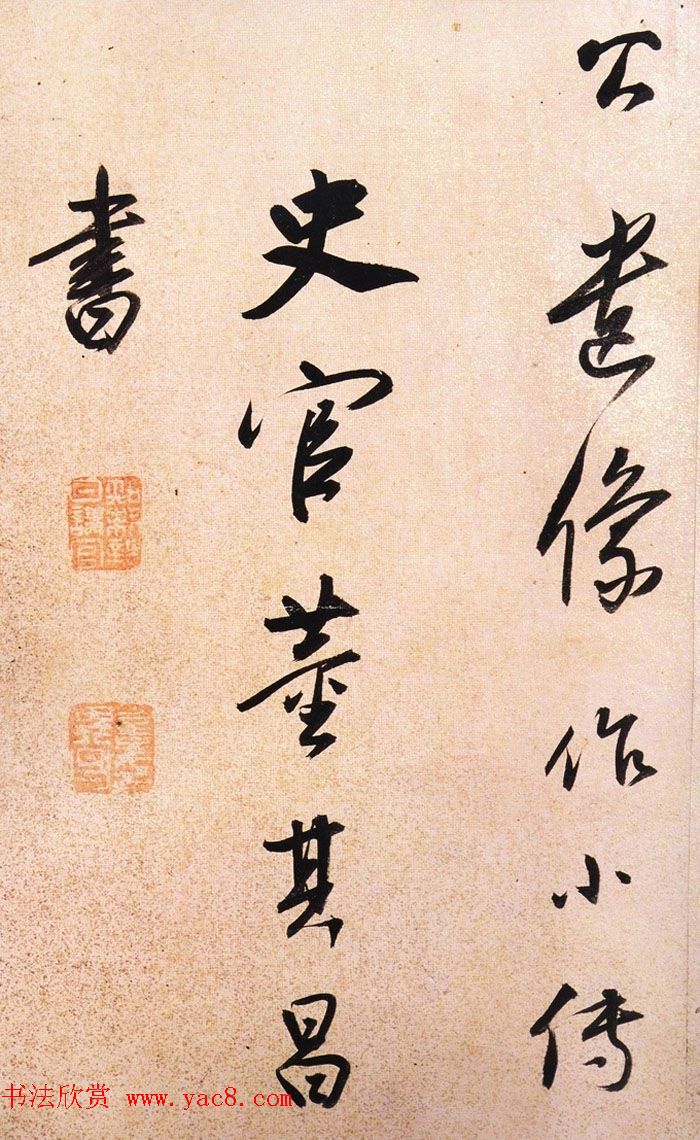 公遗像作小传
史官董其昌
書
书法欣赏 www.yac8.com